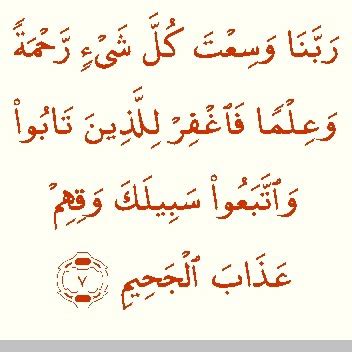 رَبَّنَا وَسِعْتَ كُلَّ شَىْءٍ رَّحْمَةً
وَعِلْمًا فَٱغْفِرْ لِلَّذِينَ تَابُوا۟
وَٱتَّبَعُوا۟ سَبِيلَكَ وَقِهِمْ
عَذَابَ ٱلْجَحِيمِ ٧